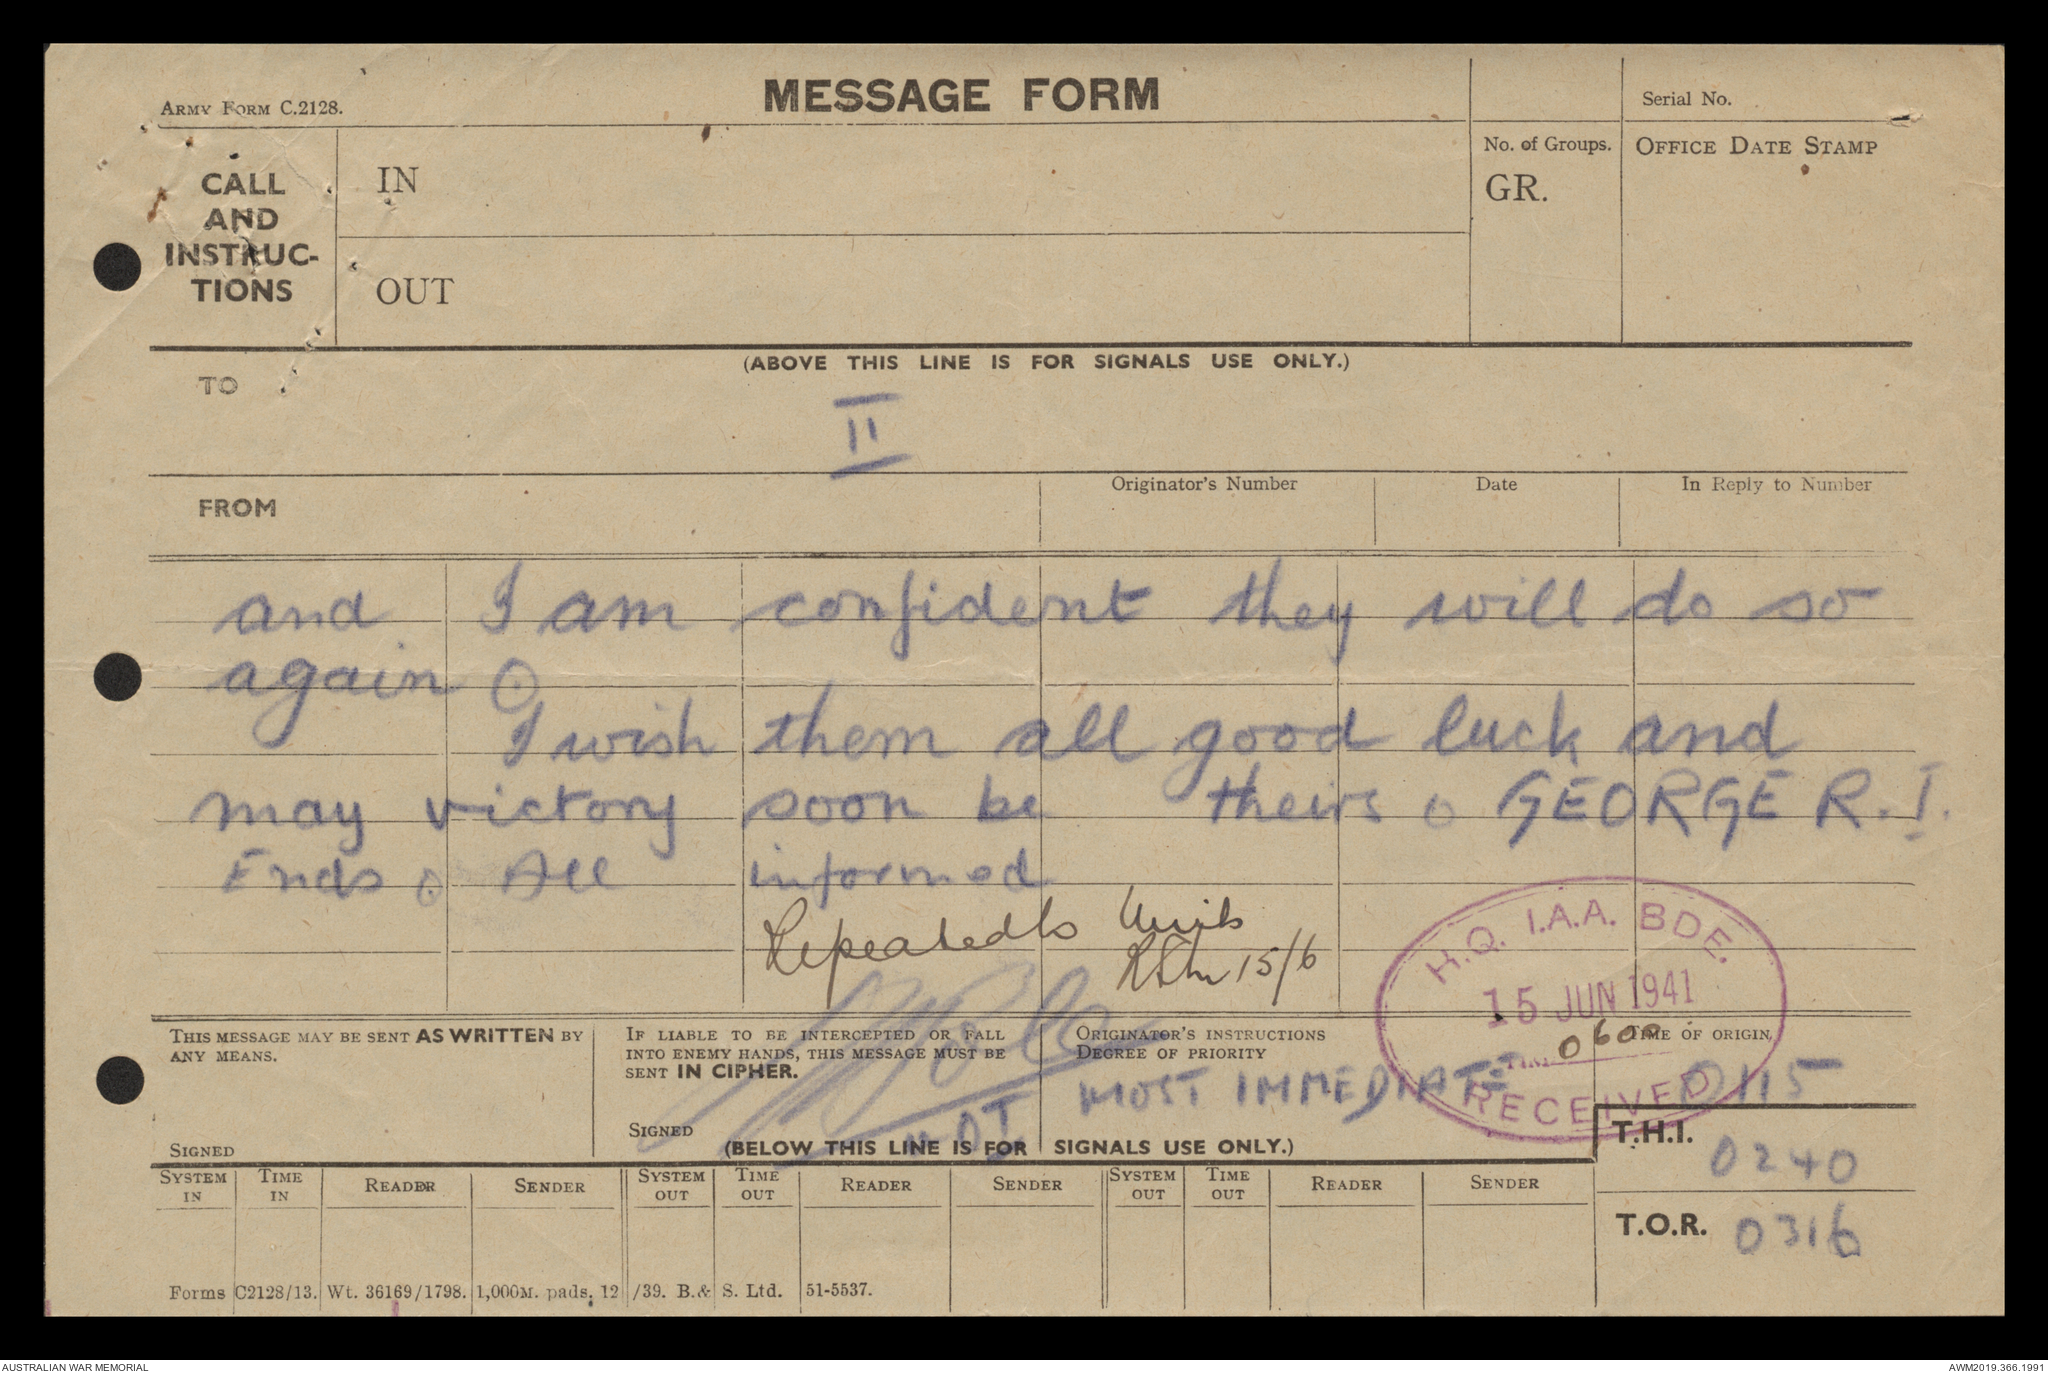 MESSAGE FORM
ARMY FORM C.2128.
Serial No.
CALL
AND
INSTRUC-
TIONS
IN
OUT
No. of Groups.
GR.
OFFICE DATE STAMP
(ABOVE THIS LINE IS FOR SIGNALS USE ONLY.)
TO
II
FROM
Originator's Number
Date
In Reply to Number
and I am confident they will do so
again ⊙
I wish them all good luck and
may victory soon be theirs ⊙ GEORGE R.I.
Ends ⊙ All informed
Repeated to Units
15/6
H.Q. 1.A.A. BDE.
15 JUN 1941
0600
RECEIVED
THIS MESSAGE MAY BE SENT AS WRITTEN BY
ANY MEANS.
SIGNED
IF LIABLE TO BE INTERCEPTED OR FALL
INTO ENEMY HANDS, THIS MESSAGE MUST BE
SENT IN CIPHER.
SIGNED
ORIGINATOR'S INSTRUCTIONS
DEGREE OF PRIORITY
MOST IMMEDIATE
TIME OF ORIGIN
0115
(BELOW THIS LINE IS FOR SIGNALS USE ONLY.)
T.H.I. 0240
T.O.R. 0316
SYSTEM IN
TIME IN
READER
SENDER
SYSTEM OUT
TIME OUT
READER
SENDER
SYSTEM OUT
TIME OUT
READER
SENDER
Forms C2128/13. Wt. 36169/1798. 1,000M. pads. 12/39. B.& S. Ltd. 51-5537.
AUSTRALIAN WAR MEMORIAL
AWM2019.366.1991